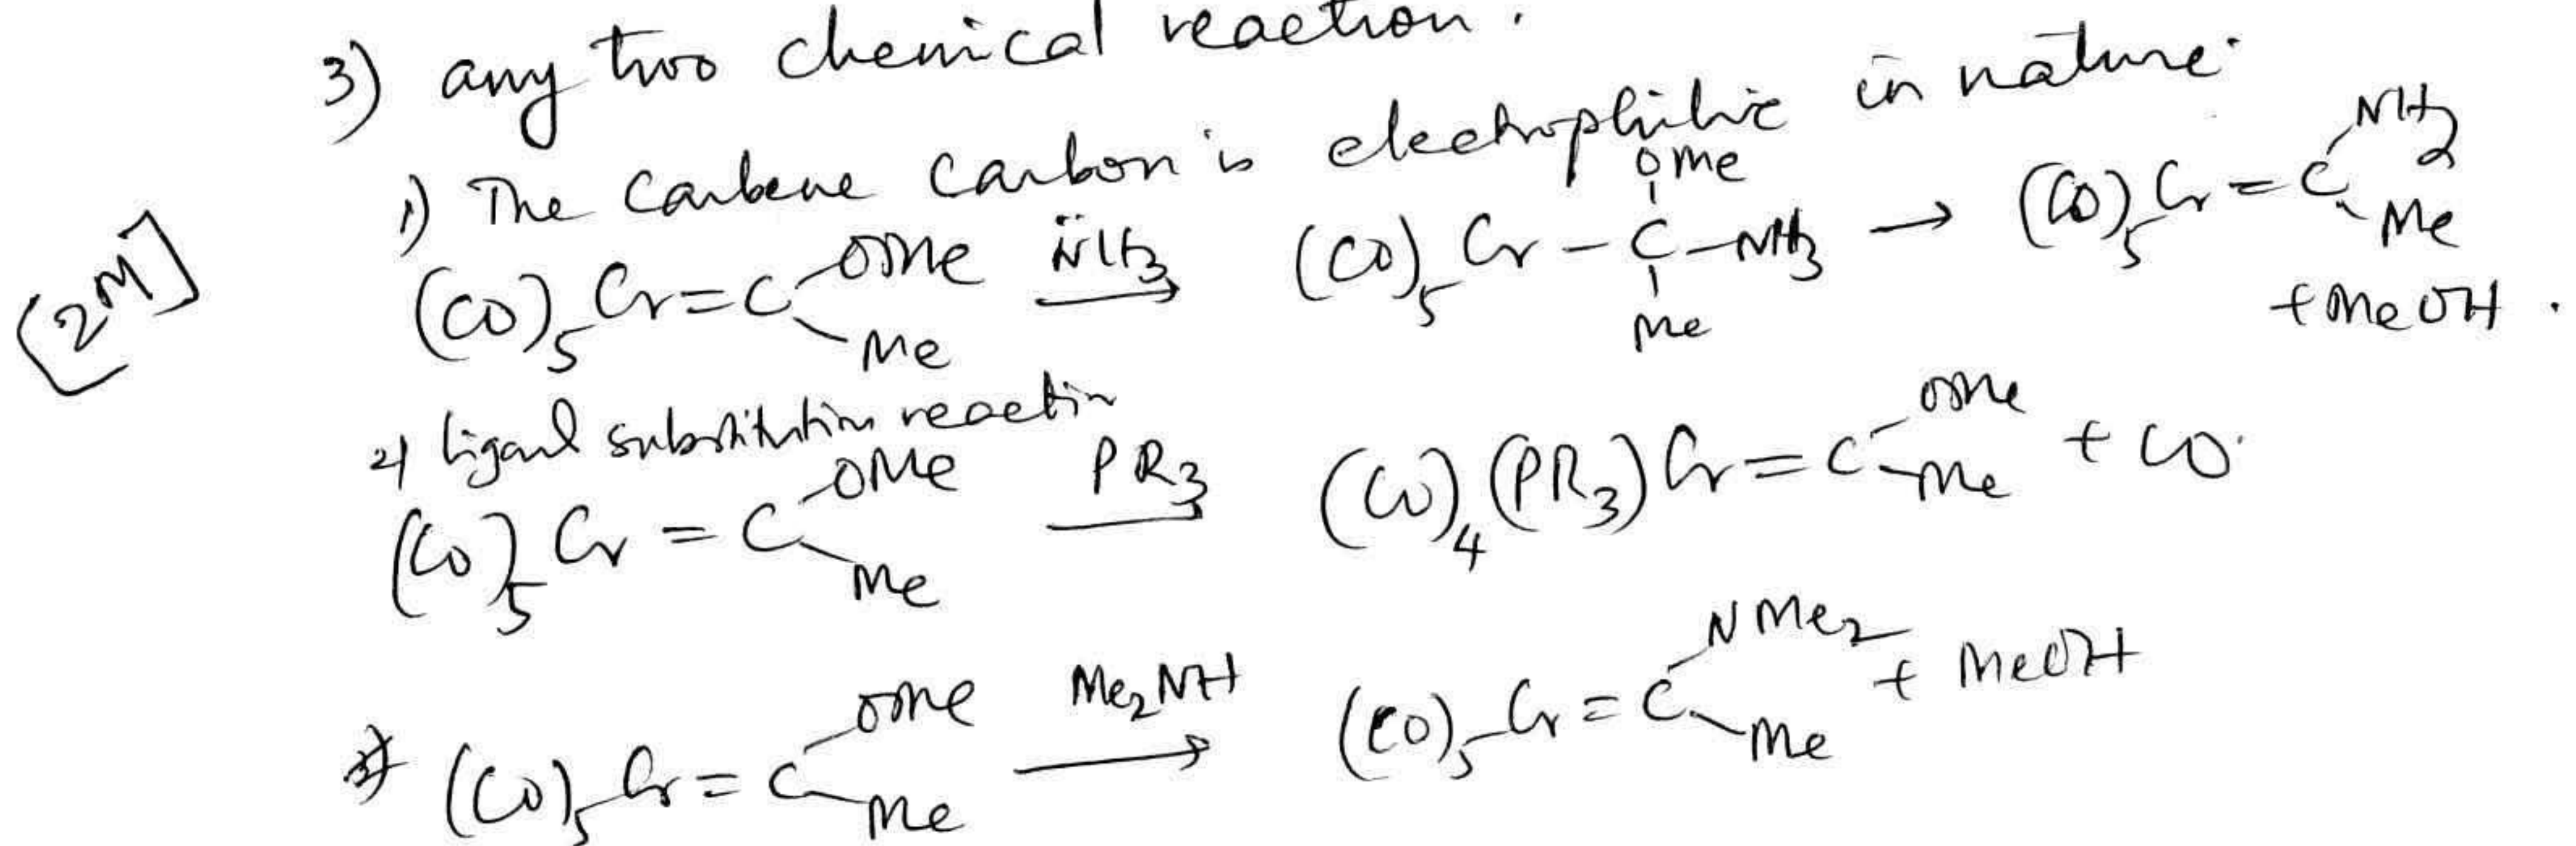 3) any two chemical reaction.
1) The Carbene Carbon is electrophilic in nature.
[2M]
(CO)5Cr=C(OMe)Me N̈H3 → (CO)5Cr–C(OMe)(Me)–NH3 → (CO)5Cr=C(NH2)Me + MeOH.
2) ligand substitution reactin
(CO)5Cr=C(OMe)Me PR3 → (CO)4(PR3)Cr=C(OMe)Me + CO.
3) (CO)5Cr=C(OMe)Me Me2NH → (CO)5Cr=C(NMe2)Me + MeOH